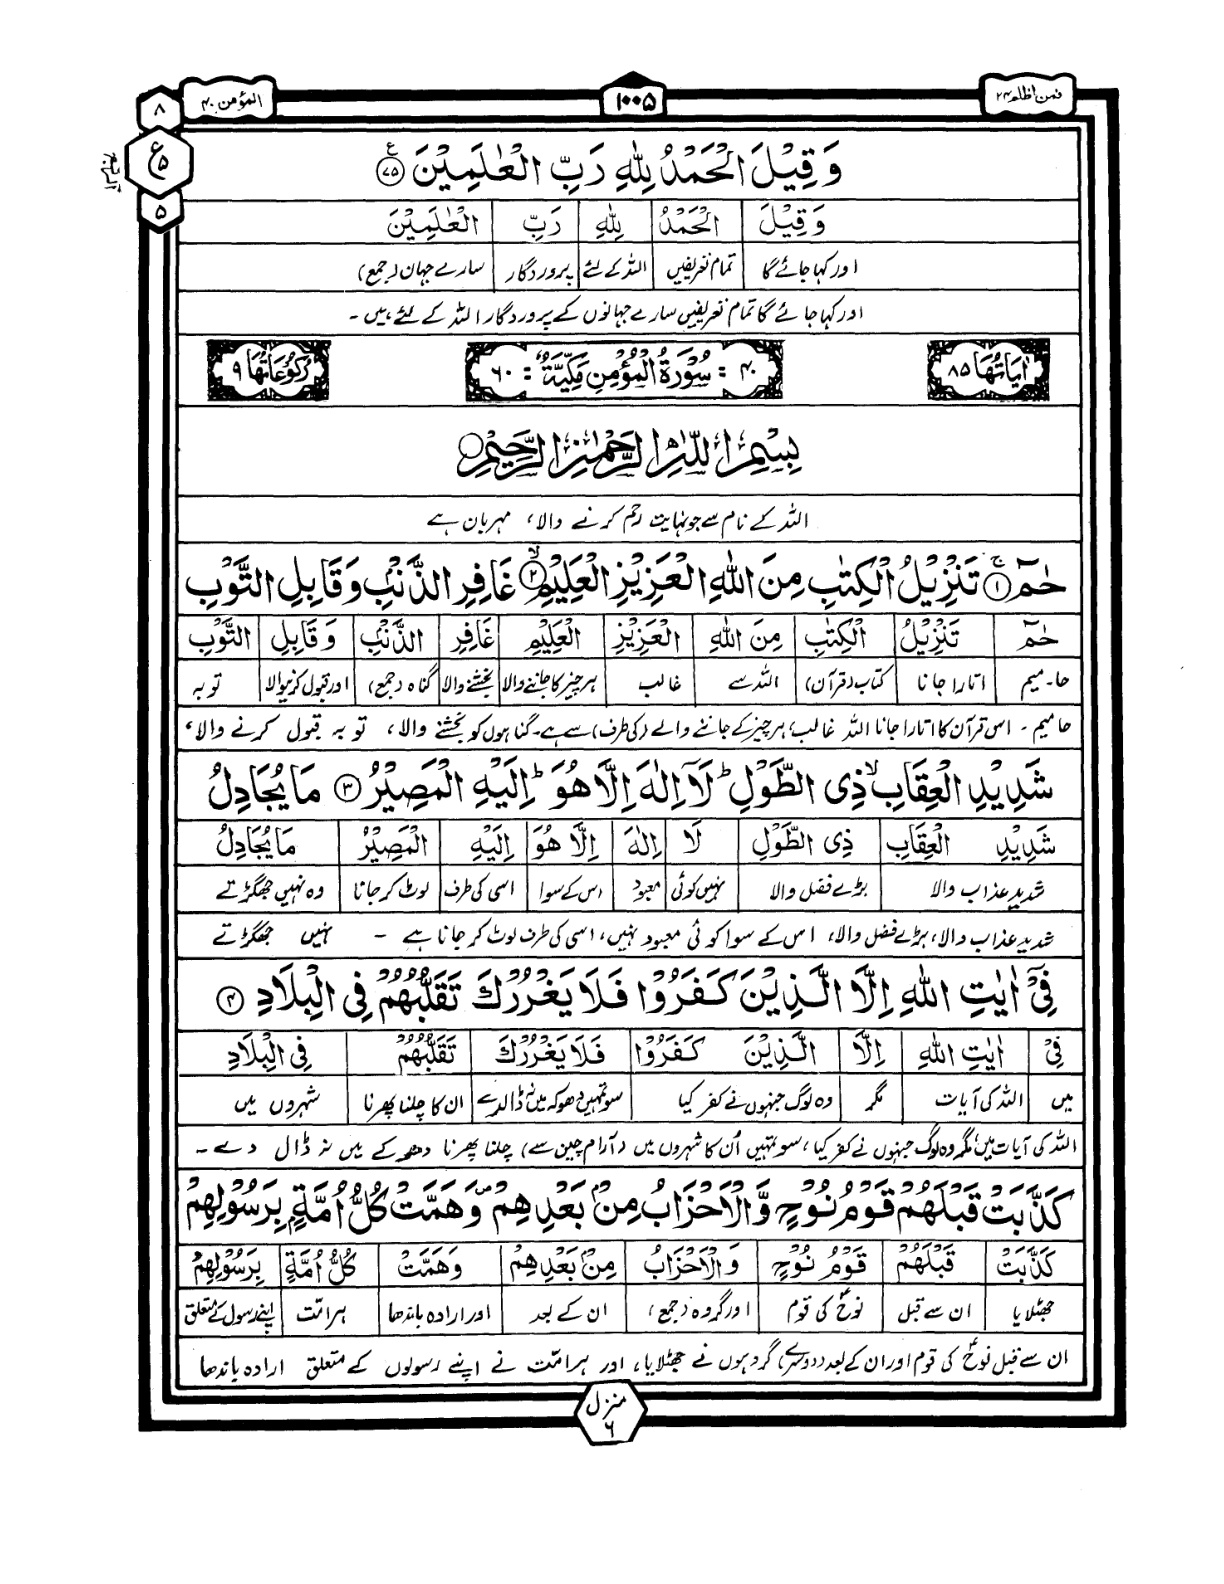 فمن اظلم ۲۴
۱۰۰۵
المؤمن ۴۰
۸
ع
۵
۵
وَقِيْلَ الْحَمْدُ لِلّٰهِ رَبِّ الْعٰلَمِيْنَ ﴿۷۵﴾
وَقِيْلَ الْحَمْدُ لِلّٰهِ رَبِّ الْعٰلَمِيْنَ
اور کہا جائے گا تمام تعریفیں اللہ کے لئے پروردگار سارے جہان (جمع)
اور کہا جائے گا تمام تعریفیں سارے جہانوں کے پروردگار اللہ کے لئے ہیں ۔
اٰيَاتُهَا ۸۵
۴۰ : سُوْرَةُ الْمُؤْمِنِ مَكِّيَّةٌ : ۶۰
رُكُوْعَاتُهَا ۹
بِسْمِ اللّٰهِ الرَّحْمٰنِ الرَّحِيْمِ
اللہ کے نام سے جو نہایت رحم کرنے والا، مہربان ہے
حٰمٓ ﴿۱﴾ تَنْزِيْلُ الْكِتٰبِ مِنَ اللّٰهِ الْعَزِيْزِ الْعَلِيْمِ ﴿۲﴾ غَافِرِ الذَّنْۢبِ وَقَابِلِ التَّوْبِ
حٰمٓ تَنْزِيْلُ الْكِتٰبِ مِنَ اللّٰهِ الْعَزِيْزِ الْعَلِيْمِ غَافِرِ الذَّنْۢبِ وَقَابِلِ التَّوْبِ
حا۔میم اتارا جانا کتاب (قرآن) اللہ سے غالب ہر چیز کا جاننے والا بخشنے والا گناہ (جمع) اور قبول کرنیوالا توبہ
حا میم ۔ اس قرآن کا اتارا جانا اللہ غالب، ہر چیز کے جاننے والے (کی طرف) سے ہے۔ گناہوں کو بخشنے والا، توبہ قبول کرنے والا،
شَدِيْدِ الْعِقَابِ ۙ ذِي الطَّوْلِ ؕ لَآ اِلٰهَ اِلَّا هُوَ ؕ اِلَيْهِ الْمَصِيْرُ ﴿۳﴾ مَا يُجَادِلُ
شَدِيْدِ الْعِقَابِ ذِي الطَّوْلِ لَا اِلٰهَ اِلَّا هُوَ اِلَيْهِ الْمَصِيْرُ مَا يُجَادِلُ
شدید عذاب والا بڑے فضل والا نہیں کوئی معبود اس کے سوا اسی کی طرف لوٹ کر جانا وہ نہیں جھگڑتے
شدید عذاب والا، بڑے فضل والا، اس کے سوا کوئی معبود نہیں، اسی کی طرف لوٹ کر جانا ہے ۔ نہیں جھگڑتے
فِيْٓ اٰيٰتِ اللّٰهِ اِلَّا الَّذِيْنَ كَفَرُوْا فَلَا يَغْرُرْكَ تَقَلُّبُهُمْ فِي الْبِلَادِ ﴿۴﴾
فِيْٓ اٰيٰتِ اللّٰهِ اِلَّا الَّذِيْنَ كَفَرُوْا فَلَا يَغْرُرْكَ تَقَلُّبُهُمْ فِي الْبِلَادِ
میں اللہ کی آیات مگر وہ لوگ جنہوں نے کفر کیا سو تمہیں دھوکہ میں نہ ڈالدے ان کا چلنا پھرنا شہروں میں
اللہ کی آیات میں مگر وہ لوگ جنہوں نے کفر کیا، سو تمہیں اُن کا شہروں میں (آرام چین سے) چلنا پھرنا دھوکے میں نہ ڈال دے ۔
كَذَّبَتْ قَبْلَهُمْ قَوْمُ نُوْحٍ وَّالْاَحْزَابُ مِنْۢ بَعْدِهِمْ ۪ وَهَمَّتْ كُلُّ اُمَّةٍۭ بِرَسُوْلِهِمْ
كَذَّبَتْ قَبْلَهُمْ قَوْمُ نُوْحٍ وَّالْاَحْزَابُ مِنْۢ بَعْدِهِمْ وَهَمَّتْ كُلُّ اُمَّةٍۭ بِرَسُوْلِهِمْ
جھٹلایا ان سے قبل نوحؑ کی قوم اور گروہ (جمع) ان کے بعد اور ارادہ باندھا ہر امّت اپنے رسول کے متعلق
ان سے قبل نوحؑ کی قوم اور ان کے بعد (دوسرے) گروہوں نے جھٹلایا، اور ہر امّت نے اپنے رسولوں کے متعلق ارادہ باندھا
منزل ۶